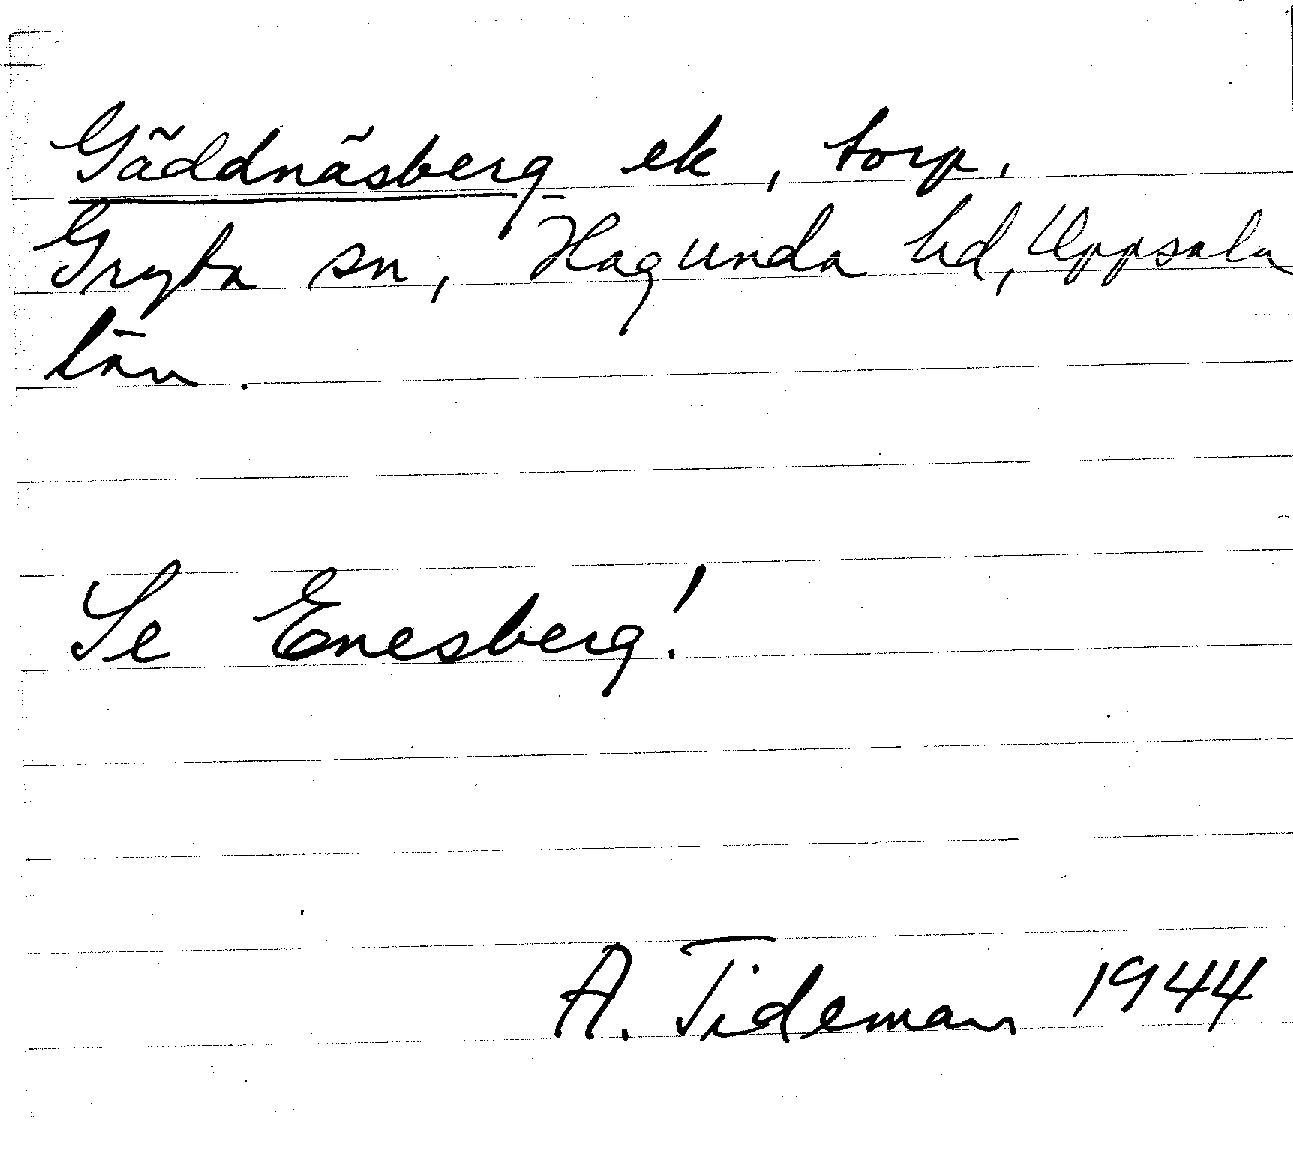 Gäddnäsberg ek, torp.
Gryta sn, Hagunda hd, Uppsala
län.
Se Enesberg!
A. Tideman 1944